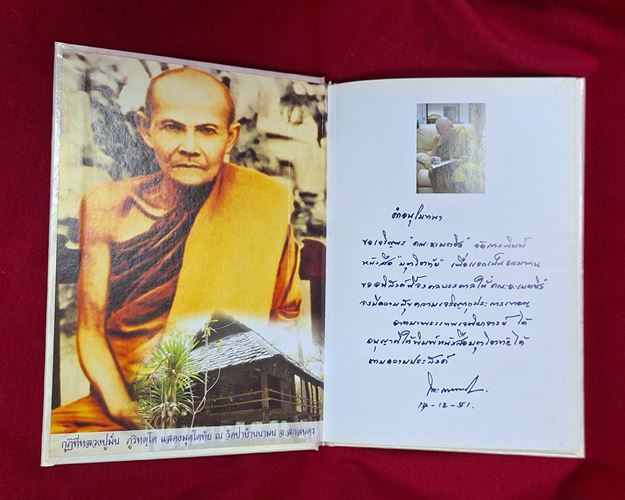 กุฏิที่หลวงปู่มั่น ภูริทตฺโต แสดงมุตโตทัย ณ วัดป่าบ้านนามน จ.สกลนคร
คำอนุโมทนา
ขอเจริญพร "คณะ จัดการพิมพ์
หนังสือ "มุตโตทัย" เพื่อแจกเป็นธรรมทาน
ขออานิสงส์นี้จงดลบรรดาลให้
จงมีความสุขความเจริญทุกประการเทอญ
อาตมาพระเทพเจติยาจารย์ ได้
อนุญาตให้พิมพ์หนังสือมุตโตทัยได้
ตามความประสงค์
๑๔-๑๒-๕๑.